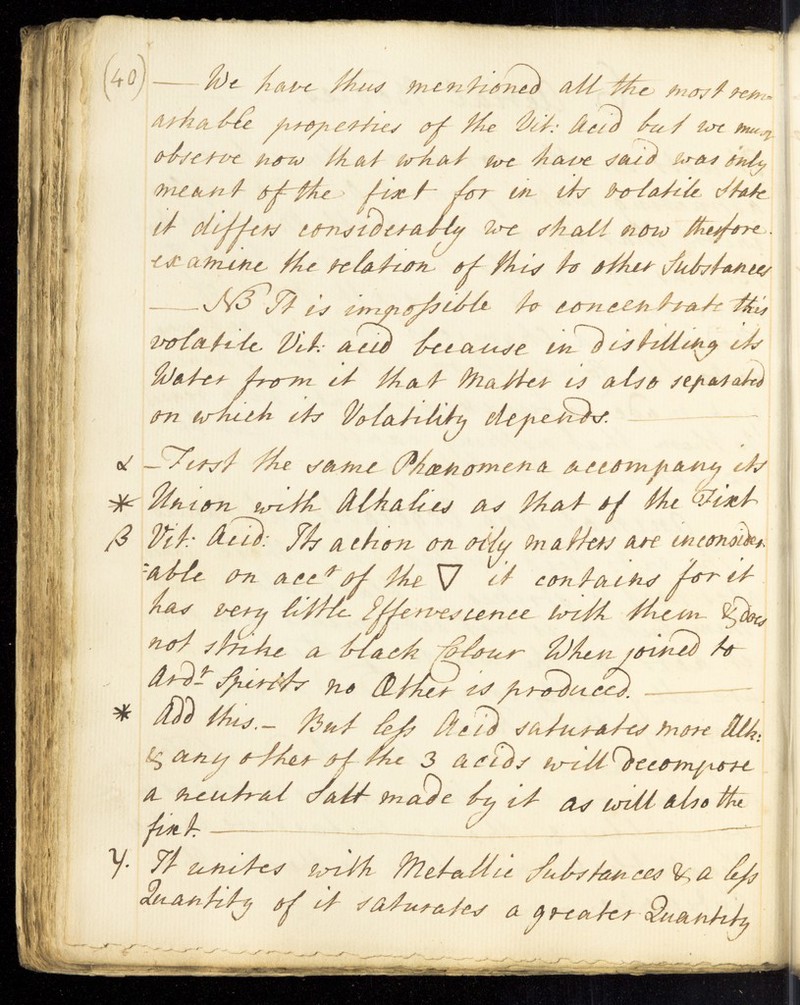 (40) — We have thus mentioned all the most rem=
arkable properties of the Vit: Acid but we must
observe now that what we have said was only
meant of the fixt for in its volatile State
it differs considerably we shall now therefore
examine the relation of this to other Substances
— NB It is impossible to concentrate this
volatile Vit: acid because in distilling its
Water from it that Matter is also separated
on which its Volatility depends. —
α — First the same Phœnomena accompany its
* Union with Alkalies as that of the Fixt
β Vit: Acid: Its action on oily matters are inconsider
=able on acct of the ▽ it contains for it
has very little Effervescence with them & does
not strike a black Colour When joined to
Ardt Spirits no Æther is produced. —
* Add this. – But less Acid saturates more Alk:
& any other of the 3 acids will decompose
a neutral Salt made by it as will also the
fixt. —
γ. It unites with Metallic Substances & a less
Quantity of it saturates a greater Quantity